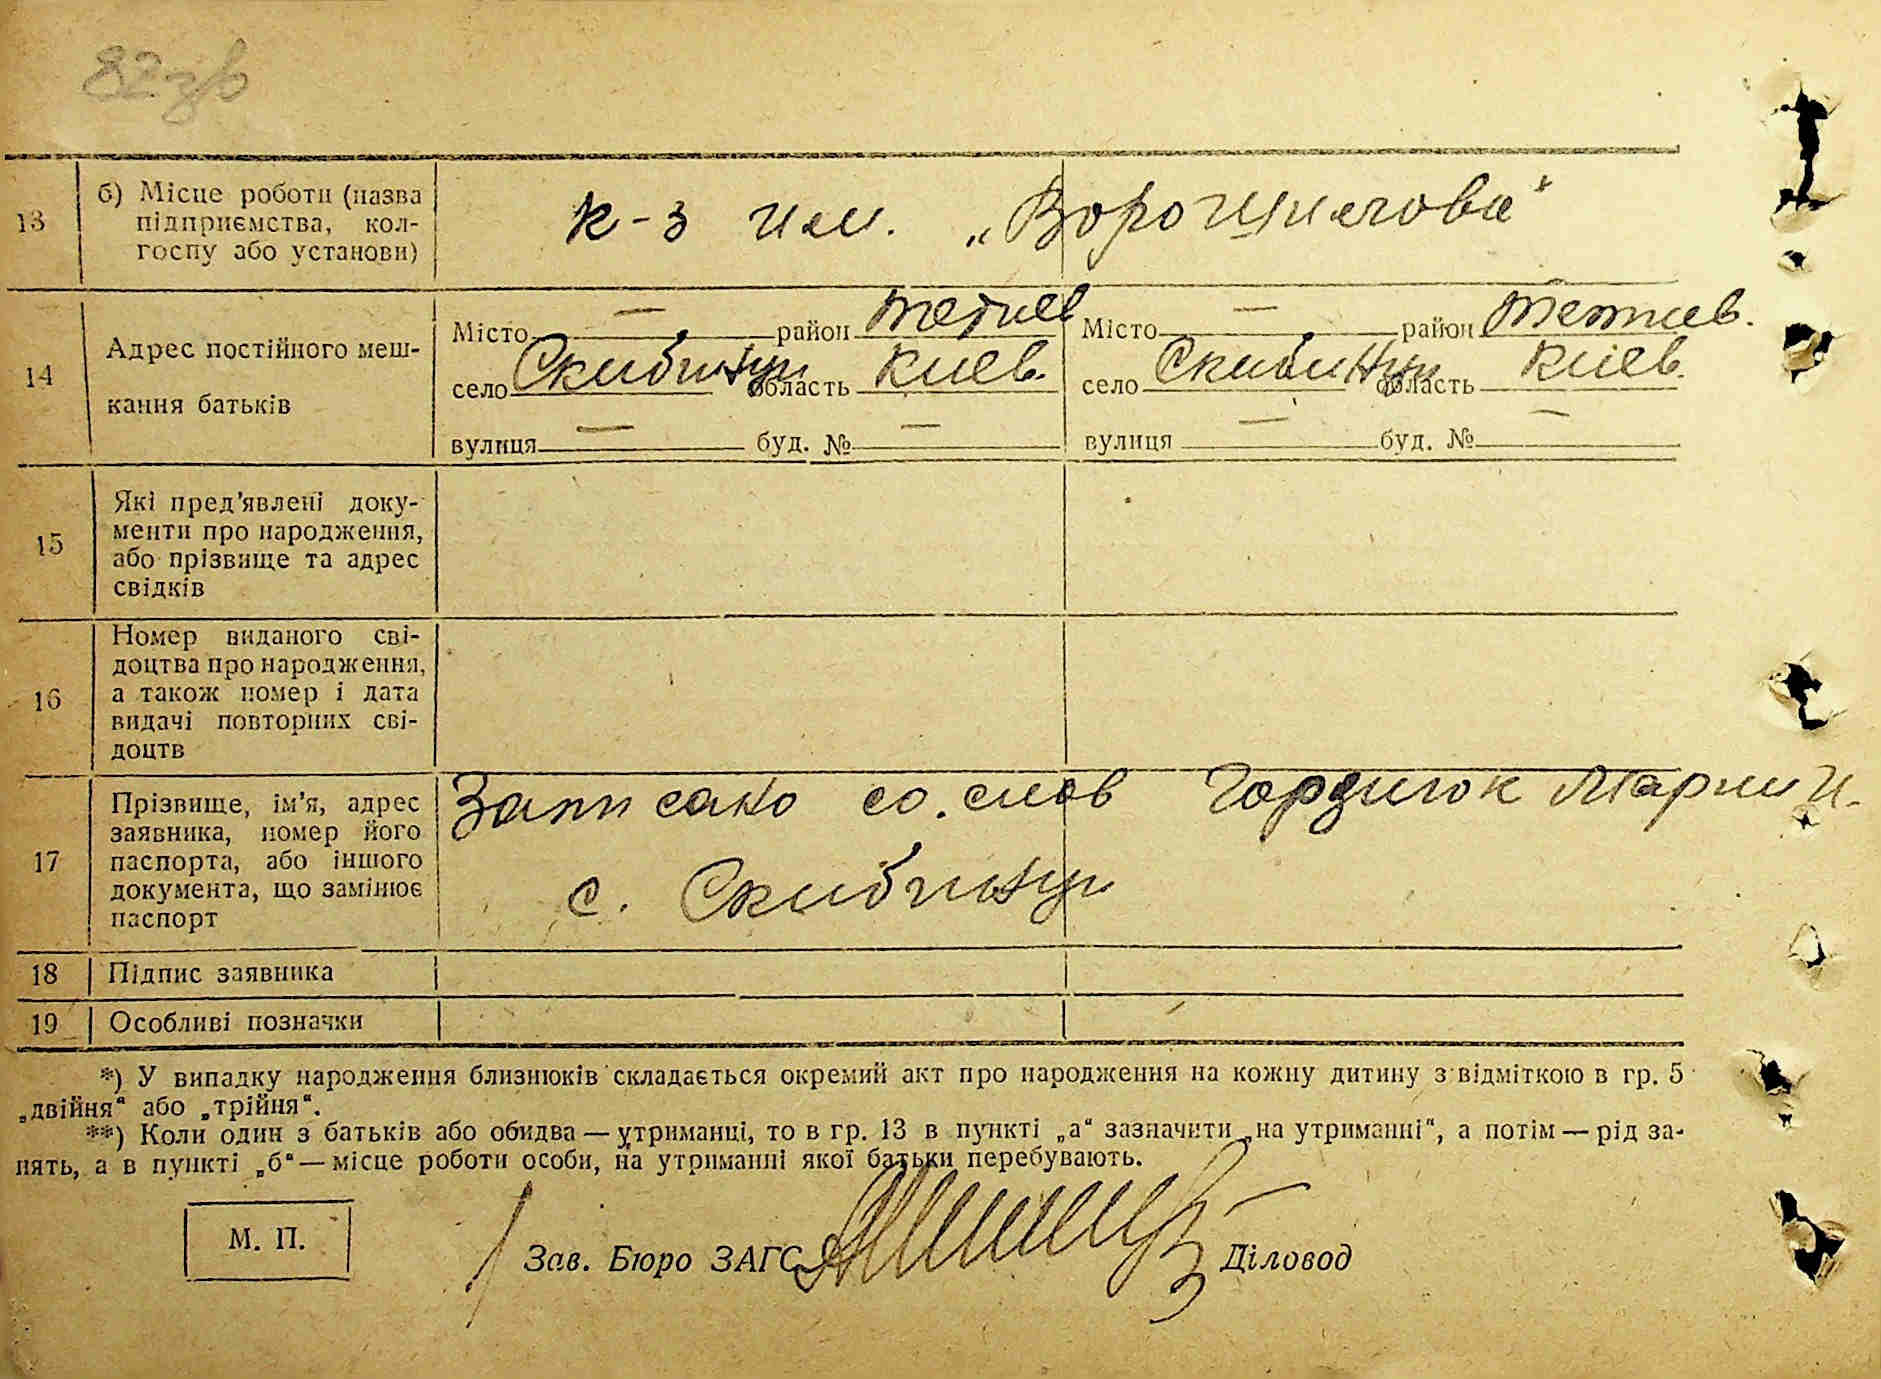 82зв
13
б) Місце роботи (назва
підприємства, кол-
госпу або установи)
к-з им. „Ворошилова"
14
Адрес постійного меш-
кання батьків
Місто — район Тетиев
село Скибинци область Киев.
вулиця — буд. № —
Місто — район Тетиев.
село Скибинци область Киев.
вулиця — буд. № —
15
Які пред'явлені доку-
менти про народження,
або прізвище та адрес
свідків
16
Номер виданого сві-
доцтва про народження,
а також номер і дата
видачі повторних сві-
доцтв
17
Прізвище, ім'я, адрес
заявника, номер його
паспорта, або іншого
документа, що замінює
паспорт
Записано со. слов Гордзиюк Марии И.
с. Скибинци
18 Підпис заявника
19 Особливі позначки
*) У випадку народження близнюків складається окремий акт про народження на кожну дитину з відміткою в гр. 5
„двійня" або „трійня".
**) Коли один з батьків або обидва — утриманці, то в гр. 13 в пункті „а" зазначити „на утриманні", а потім — рід за-
нять, а в пункті „б" — місце роботи особи, на утриманні якої батьки перебувають.
М. П.
Зав. Бюро ЗАГС
Діловод